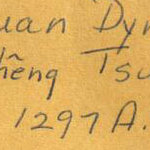 uan Dyn
hêng Tsu
1297 A.